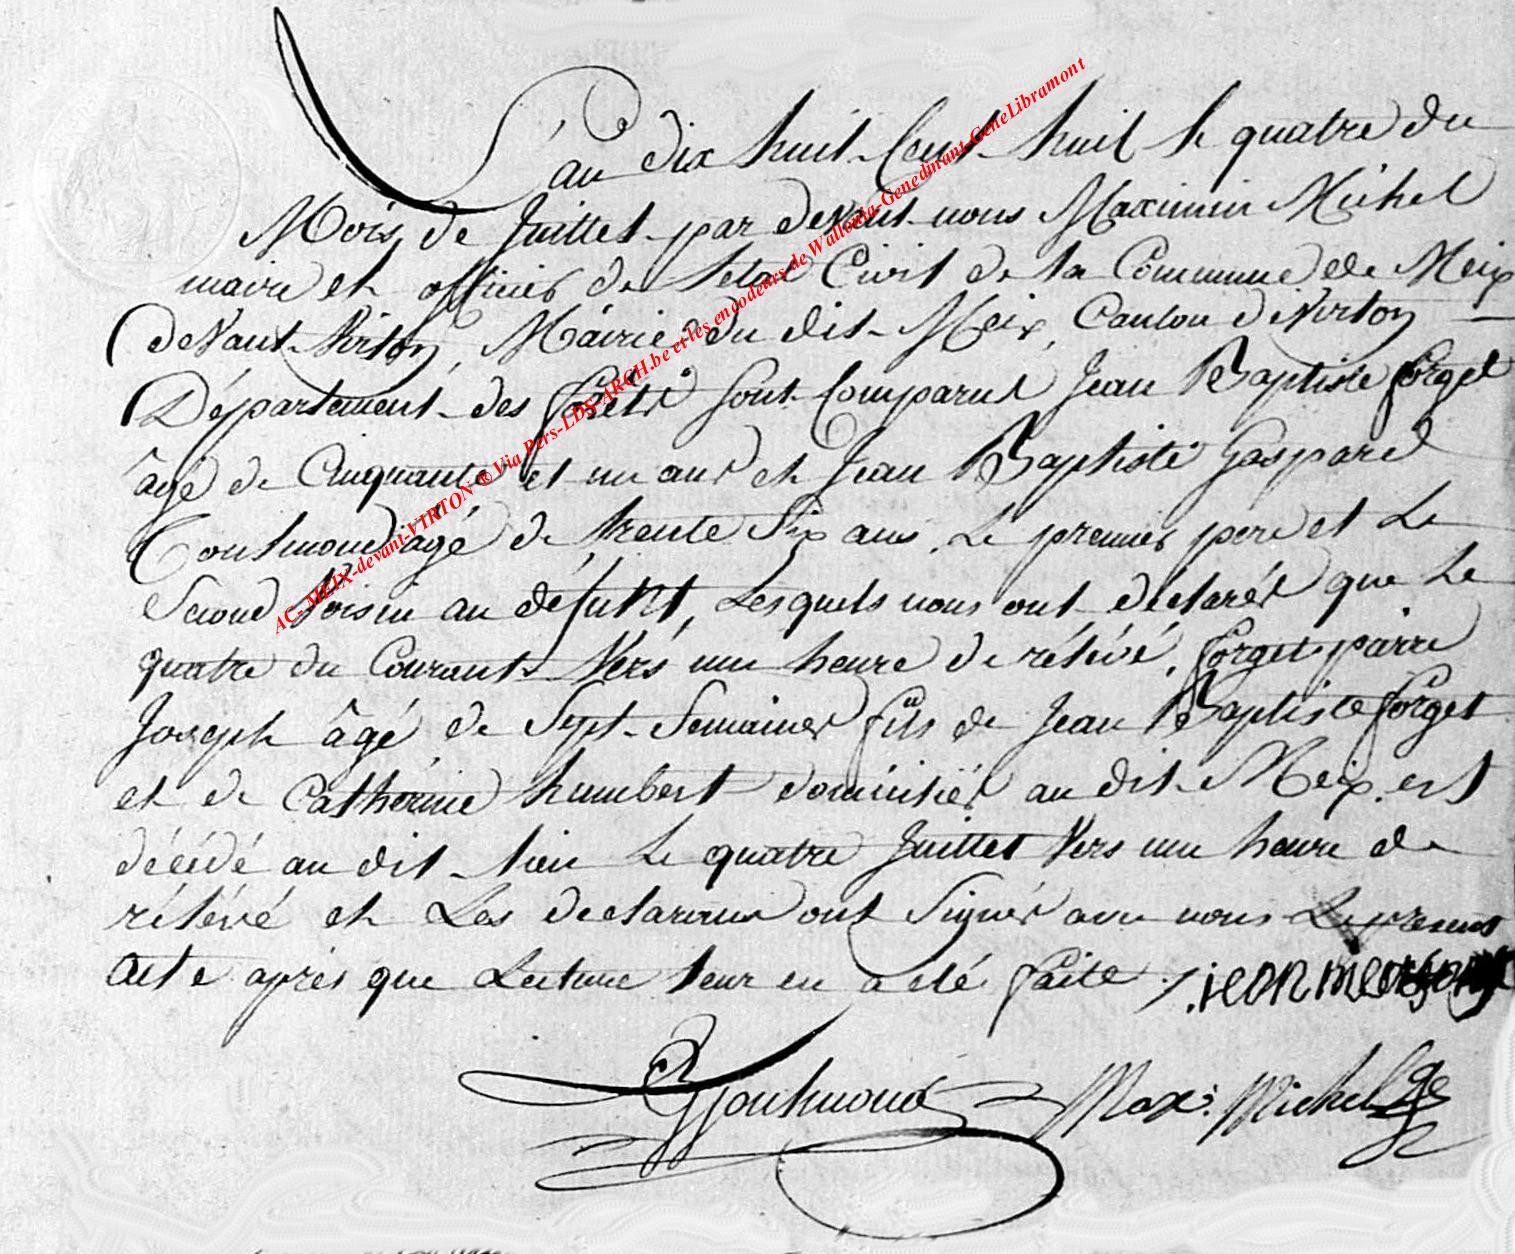 L'an dix huit Cent huit le quatre du
Mois de Juillet par deVant nous Maximin Michel
maire et officier de l'etat Civil de la Commune de Meix
deVant Virton, Mairie du dit Meix, Canton de Virton
Département des forêts sont Comparus Jean Baptiste forget
âgé de Cinquante et un ans et Jean Baptiste Gaspard
Gouthmond âgé de trente Six ans, Le premier pere et Le
Second Voisin au défunt, Lesquels nous ont déclarés que Le
quatre du Courant Vers une heure de rélévé, forget pierre
Joseph âgé de Sept Semaines fils de Jean Baptiste forget
et de Catherine humbert domiciliés au dit Meix est
décédé au dit lieu Le quatre Juillet Vers une heure de
rélévé et Les declarans ont Signés avec nous Le present
acte aprés que Lecture leur en a eté faite ./.
Gouthmond Max: Michel
AC- MEIX-devant-VIRTON ® Via Pers-LDS-ARCH.be et les encodeurs de Wallonia-Genedinant-GeneLibramont